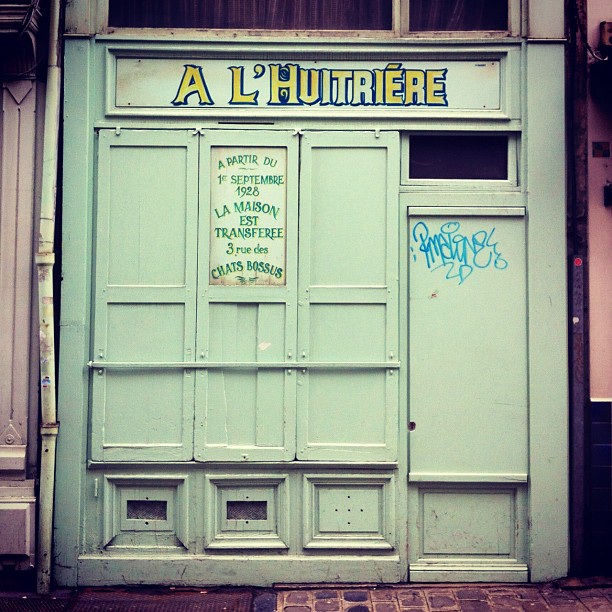 A L'HUITRIÉRE
A PARTIR DU
1er SEPTEMBRE
1928
LA MAISON
EST
TRANSFEREE
3 rue des
CHATS BOSSUS